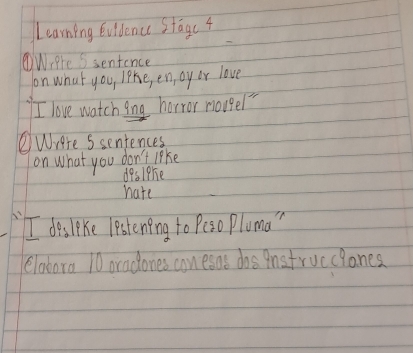 Learning Evidence Stage 4
① Write 5 sentence
on what you, like, en, oy or love
"I love watching horror moviel"
② Write 5 sentences
on what you don't like
dislike
hate
"I dislike listening to Peso Pluma"
elabora 10 oraciones con esas dos instrucciones